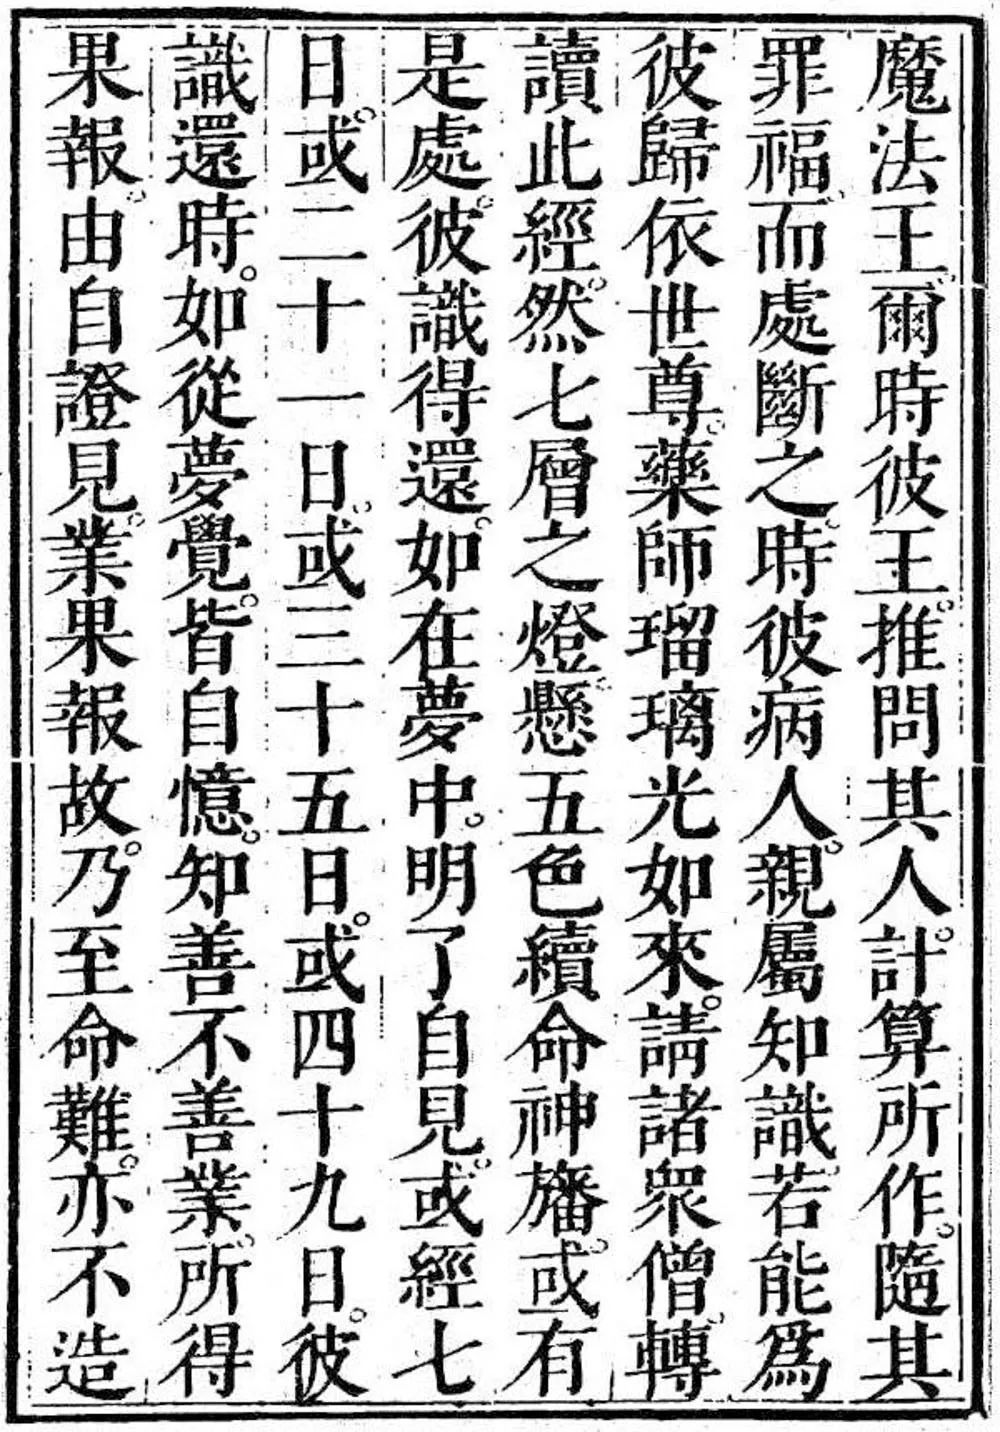 魔法王爾時彼王。推問其人。計算所作。隨其
罪福。而處斷之。時彼病人。親屬知識。若能為
彼歸依世尊。藥師瑠璃光如來。請諸眾僧。轉
讀此經。然七層之燈。懸五色續命神旛。或有
是處。彼識得還。如在夢中。明了自見。或經七
日。或二十一日。或三十五日。或四十九日。彼
識還時。如從夢覺。皆自憶知。善不善業。所得
果報。由自證見。業果報故。乃至命難。亦不造